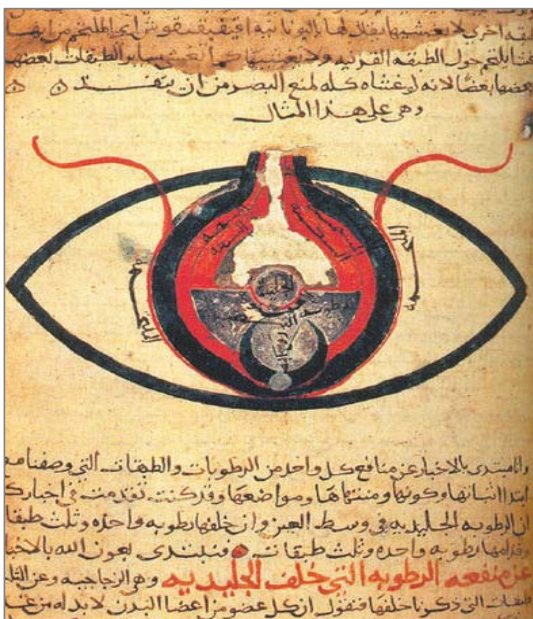 طبقه اخرى لا يغشيها يقال لها باليونانيه اي الملتحم من
يلتحم حول الطبقه القرنيه ولا يغشيها كما تغشى ساير الطبقات بعضها
بعضها بعضا لانه لو غشاه كله لمنع البصر من ان ينفذ
وهى على هذا المثال
الجليدية
وانا مبتدى بالاخبار عن منافع كل واحد من الرطوبات والطبقات التى وصفنا
ابتدا اثباتها وكونها ومنتهاها ومواضعها وقد كنت تقدمت فى اخبارك
ان الرطوبه الجليديه فى وسط العين وان خلفها رطوبه واحده وثلث طبقا
وقدامها رطوبه واحده وثلث طبقات فنبتدى بعون الله بالاخبا
عن منفعه الرطوبه التى خلف الجليديه وهى الزجاجيه وعن الثلا
طبقات التى ذكرنا خلفها فنقول ان كل عضو من اعضا البدن لا بد له من